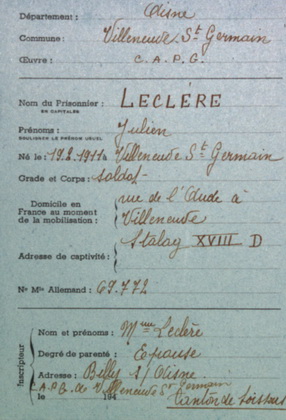 Département : Aisne
Commune : Villeneuve St Germain
Œuvre : C.A.P.G.
Nom du Prisonnier : LECLÈRE
EN CAPITALES
Prénoms : Julien
SOULIGNER LE PRÉNOM USUEL
Né le : 19.2.1911 à Villeneuve St Germain
Grade et Corps : soldat
Domicile en France au moment de la mobilisation : rue de l'Aude à
Villeneuve
Stalag XVIII D
Adresse de captivité :
No Mle Allemand : 69.772
Inscripteur
Nom et prénoms : Mme Leclère
Degré de parenté : Epouse
Adresse : Billy s/ Aisne
C.A.P.G. de Villeneuve St Germain
le 194 Canton de Soissons